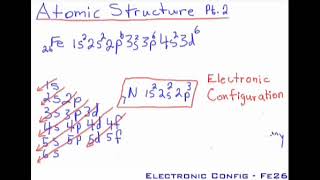 Atomic Structure Pt. 2
₂₆Fe 1s²2s²2p⁶3s²3p⁶4s²3d⁶
1s
2s 2p
3s 3p 3d
4s 4p 4d 4f
5s 5p 5d 5f
6s
₇N 1s²2s²2p³
Electronic
Configuration
Electronic Config - Fe26